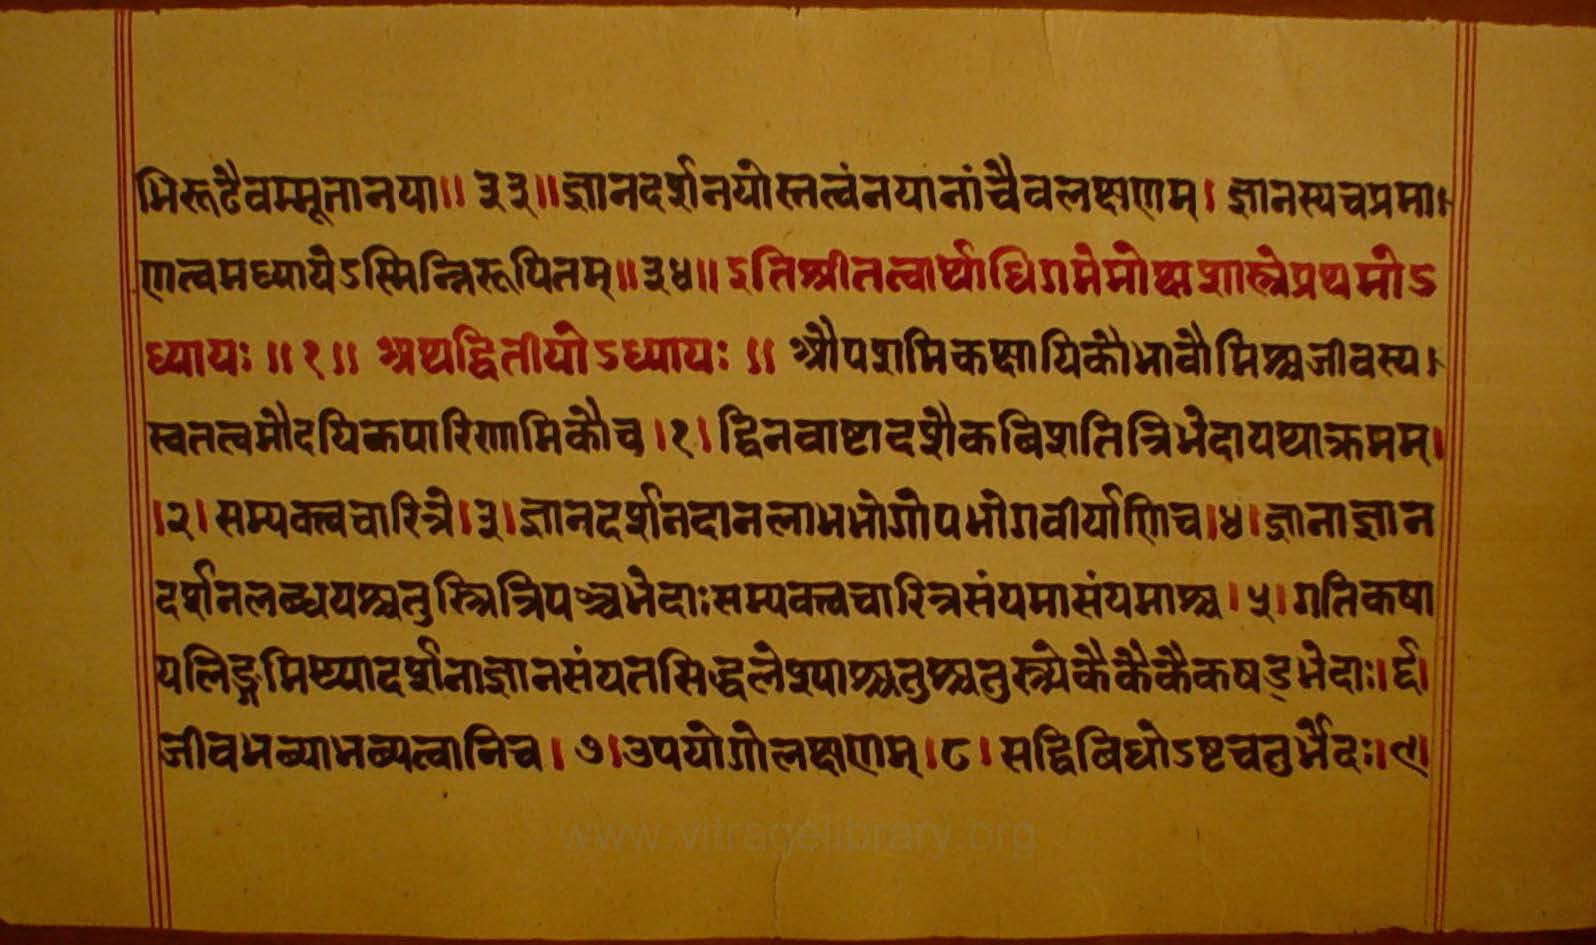 भिरूढैवम्भूतानया॥ ३३॥ज्ञानदर्शनयोस्तत्वंनयानांचैवलक्षणम्। ज्ञानस्यचप्रमा।
णत्वमध्यायेऽस्मिन्निरूपितम्॥३४॥ इतिश्रीतत्वार्थाधिगमेमोक्षशास्त्रेप्रथमोऽ
ध्यायः ॥१॥ अथद्वितीयोऽध्यायः ॥ औपशमिकक्षायिकौभावौमिश्रश्चजीवस्य।
स्वतत्वमौदयिकपारिणामिकौच।१। द्विनवाष्टादशैकबिशतित्रिभेदायथाक्रमम्।
।२। सम्यक्त्वचारित्रे।३।ज्ञानदर्शनदानलाभभोगोपभोगवीर्याणिच।४।ज्ञानाज्ञान
दर्शनलब्धयश्चतुस्त्रित्रिपञ्चभेदाःसम्यक्त्वचारित्रसंयमासंयमाश्च।५।गतिकषा
यलिङ्गमिथ्यादर्शनाज्ञानसंयतसिद्धलेश्याश्चतुश्चतुस्त्र्येकैकैकैकषड्भेदाः।६।
जीवभव्याभव्यत्वानिच। ७।उपयोगोलक्षणम्।८। सद्विबिधोऽष्टचतुर्भेदः।९।
www.vitragelibrary.org